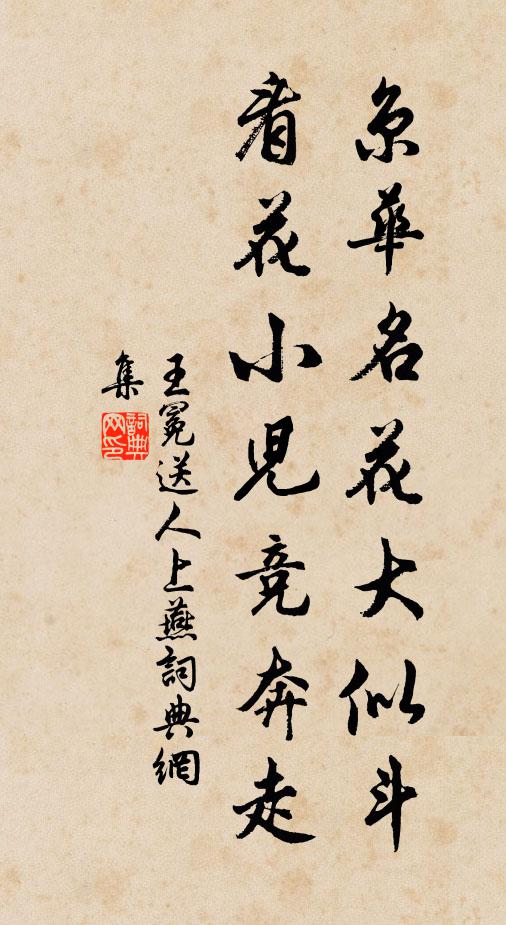 京華名花大似斗
看花小兒競奔走
王冕送人上燕詞典網
集
詞典
網印